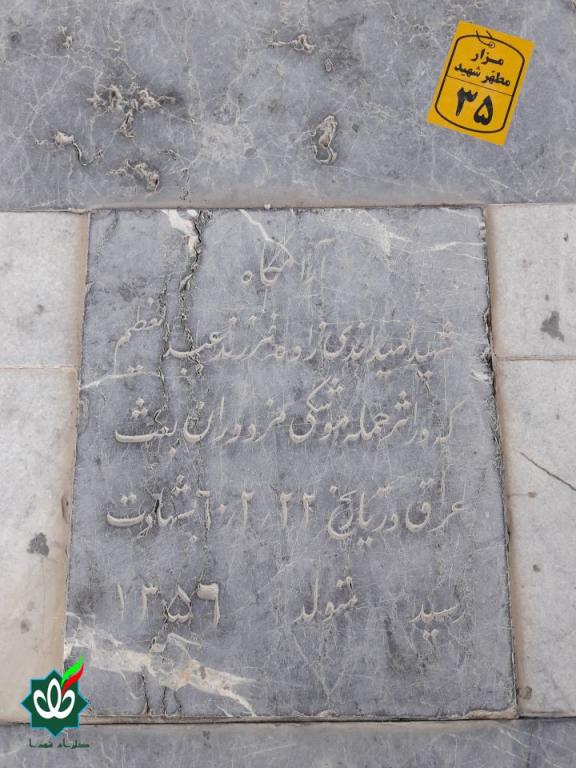 مزار
مطهّر شهید
۳۵
آرامگاه
شهید امید ایزدی زاده فرزند عبدالعظیم
که در اثر حمله موشکی مزدوران بعث
عراق در تاریخ ۲۲ر۲ر۶۰ بشهادت
رسید متولد ۱۳۵۶
گلزار شهدا